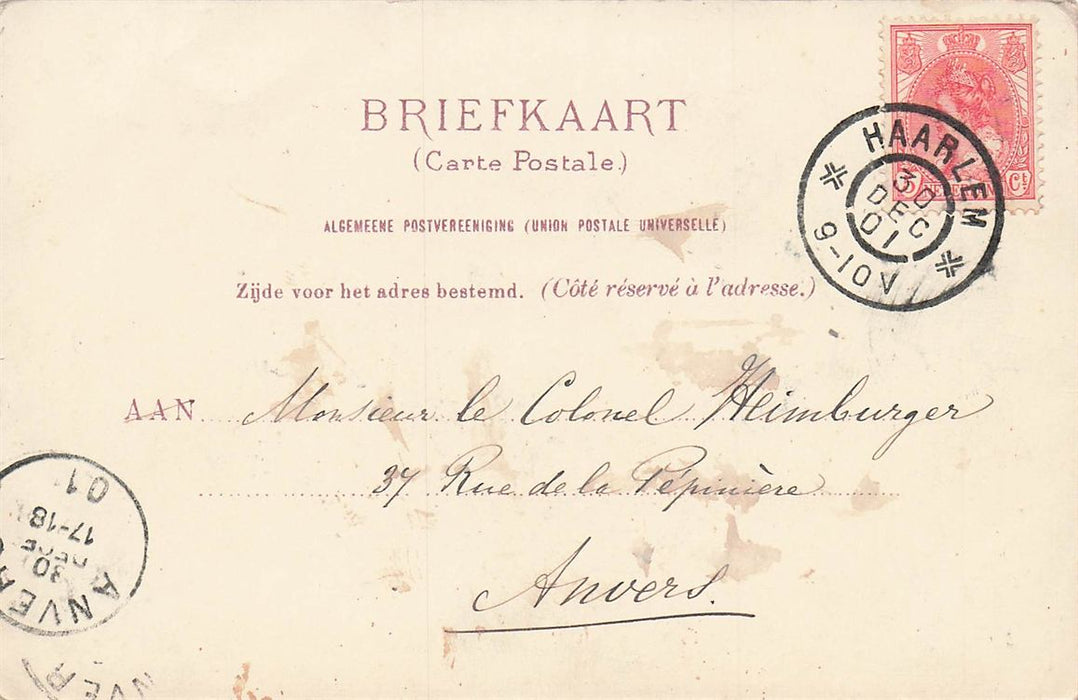 BRIEFKAART
(Carte Postale.)
ALGEMEENE POSTVEREENIGING (UNION POSTALE UNIVERSELLE)
Zijde voor het adres bestemd. (Côté réservé à l'adresse.)
AAN Monsieur le Colonel Heimburger
37 Rue de la Pépinière
Anvers.
HAARLEM
30
DEC
01
9-10V
5 NEDERLAND CT
ANVERS
30
DEC
17-18
01